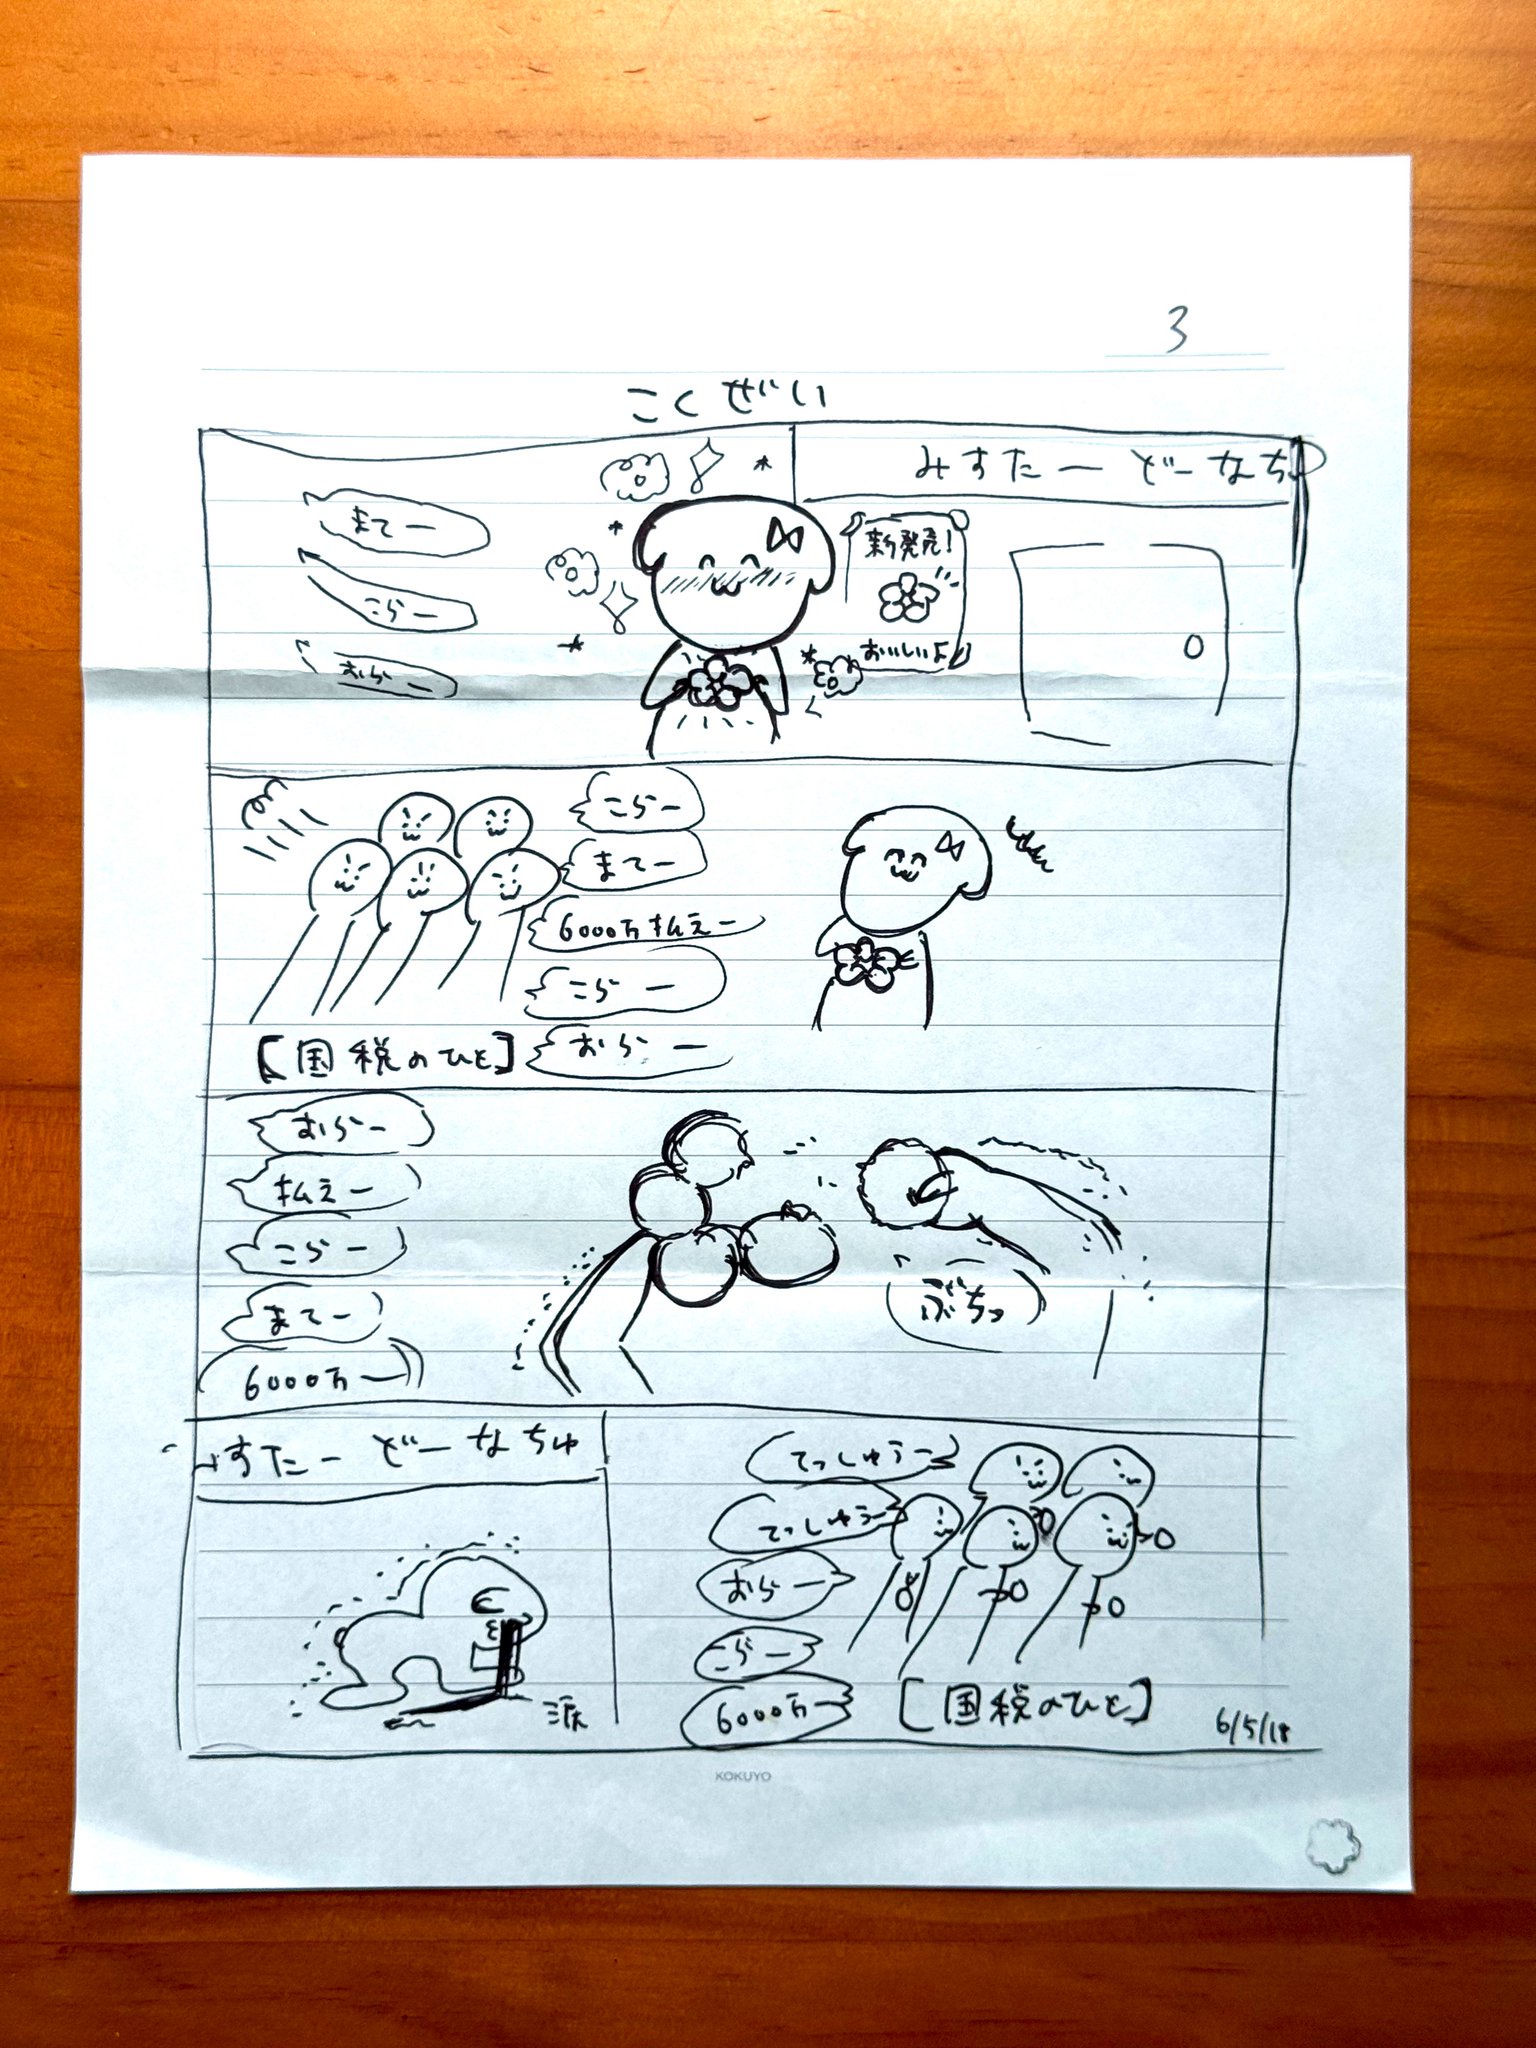 3
こくぜい
みすたーどーなちゅ
新発売!
おいしいよ
まてー
こらー
おらー
こらー
まてー
6000万払えー
こらー
おらー
[国税のひと]
おらー
払えー
こらー
まてー
6000万ー
ぶちっ
みすたーどーなちゅ
てっしゅうー
てっしゅうー
おらー
こらー
6000万ー
[国税のひと]
6/5/18
KOKUYO